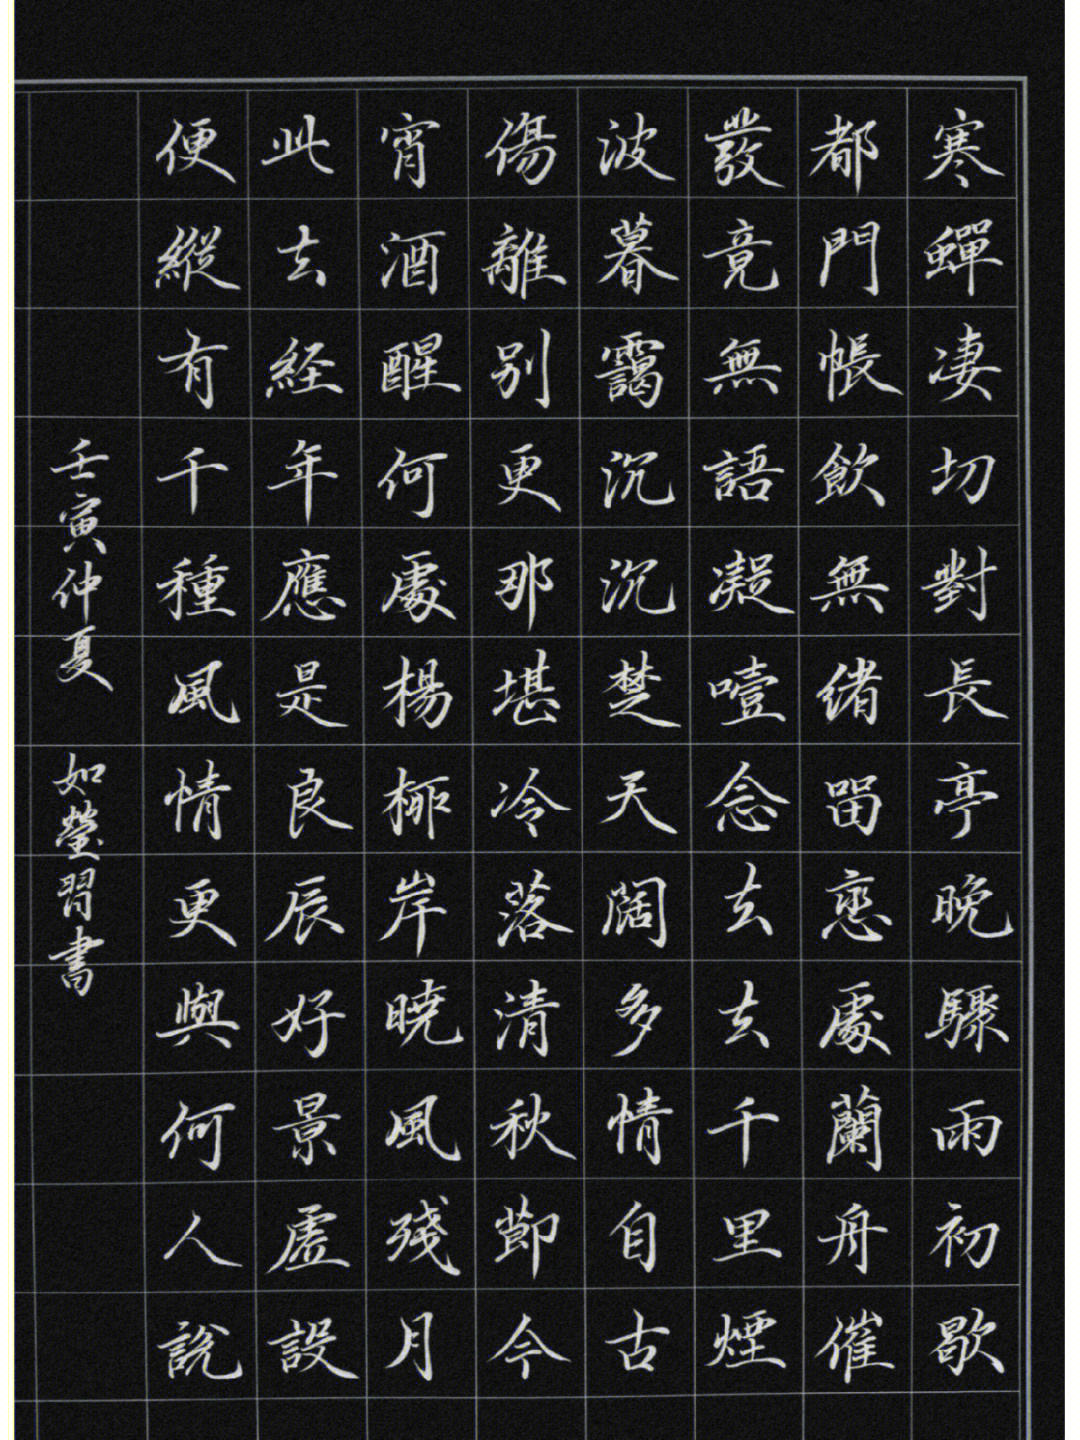 寒蟬凄切對長亭晚驟雨初歇
都門帳飲無緒留戀處蘭舟催
發竟無語凝噎念去去千里煙
波暮靄沉沉楚天闊多情自古
傷離別更那堪冷落清秋節今
宵酒醒何處楊柳岸曉風殘月
此去経年應是良辰好景虛設
便縱有千種風情更與何人說
壬寅仲夏 如瑩習書